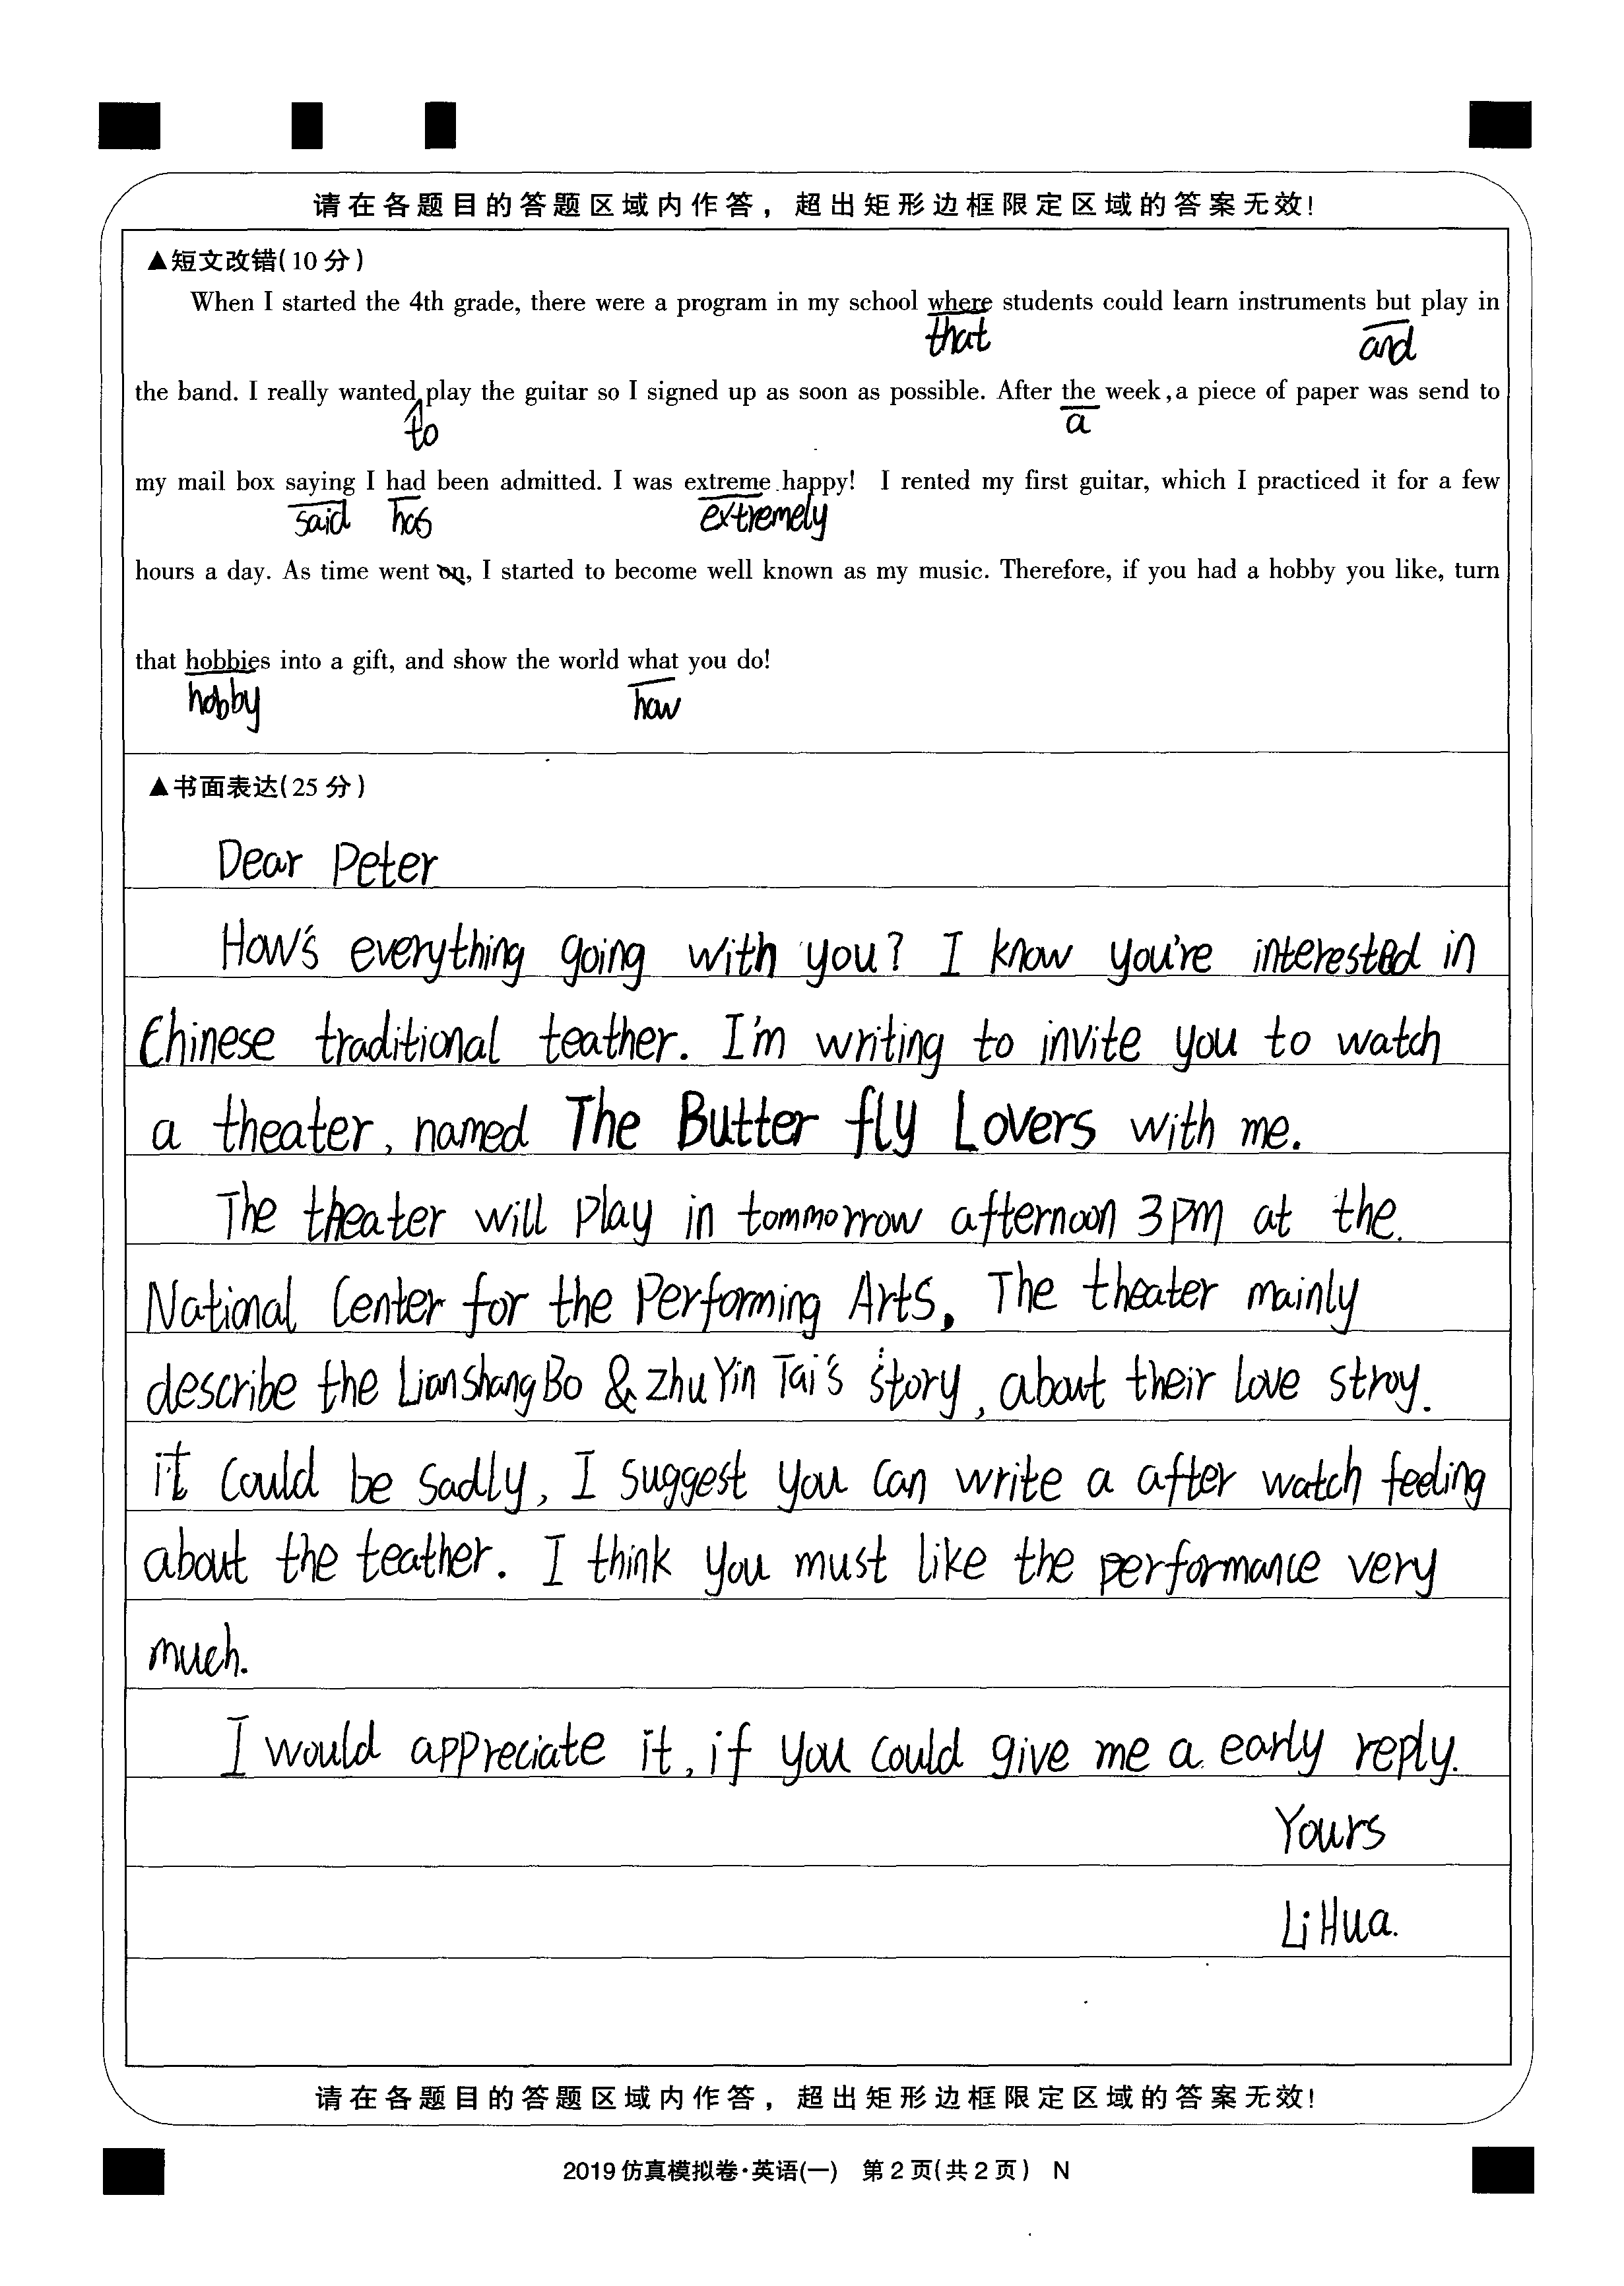 请在各题目的答题区域内作答，超出矩形边框限定区域的答案无效！
▲短文改错(10分)
When I started the 4th grade, there were a program in my school where students could learn instruments but play in
that and
the band. I really wanted play the guitar so I signed up as soon as possible. After the week, a piece of paper was send to
to a
my mail box saying I had been admitted. I was extreme happy! I rented my first guitar, which I practiced it for a few
said has extremely
hours a day. As time went on, I started to become well known as my music. Therefore, if you had a hobby you like, turn
that hobbies into a gift, and show the world what you do!
hobby how
▲书面表达(25分)
Dear Peter
How's everything going with you? I know you're interested in
Chinese traditional teather. I'm writing to invite you to watch
a theater, named The Butter fly Lovers with me.
The theater will play in tommorrow afternoon 3PM at the.
National Center for the Performing Arts. The theater mainly
describe the LianshangBo & zhuYin Tai's story, about their love stroy.
it could be sadly, I suggest you can write a after watch feeling
about the teather. I think you must like the performance very
much.
I would appreciate it, if you could give me a early reply.
Yours
LiHua.
请在各题目的答题区域内作答，超出矩形边框限定区域的答案无效！
2019仿真模拟卷·英语(一) 第2页(共2页) N